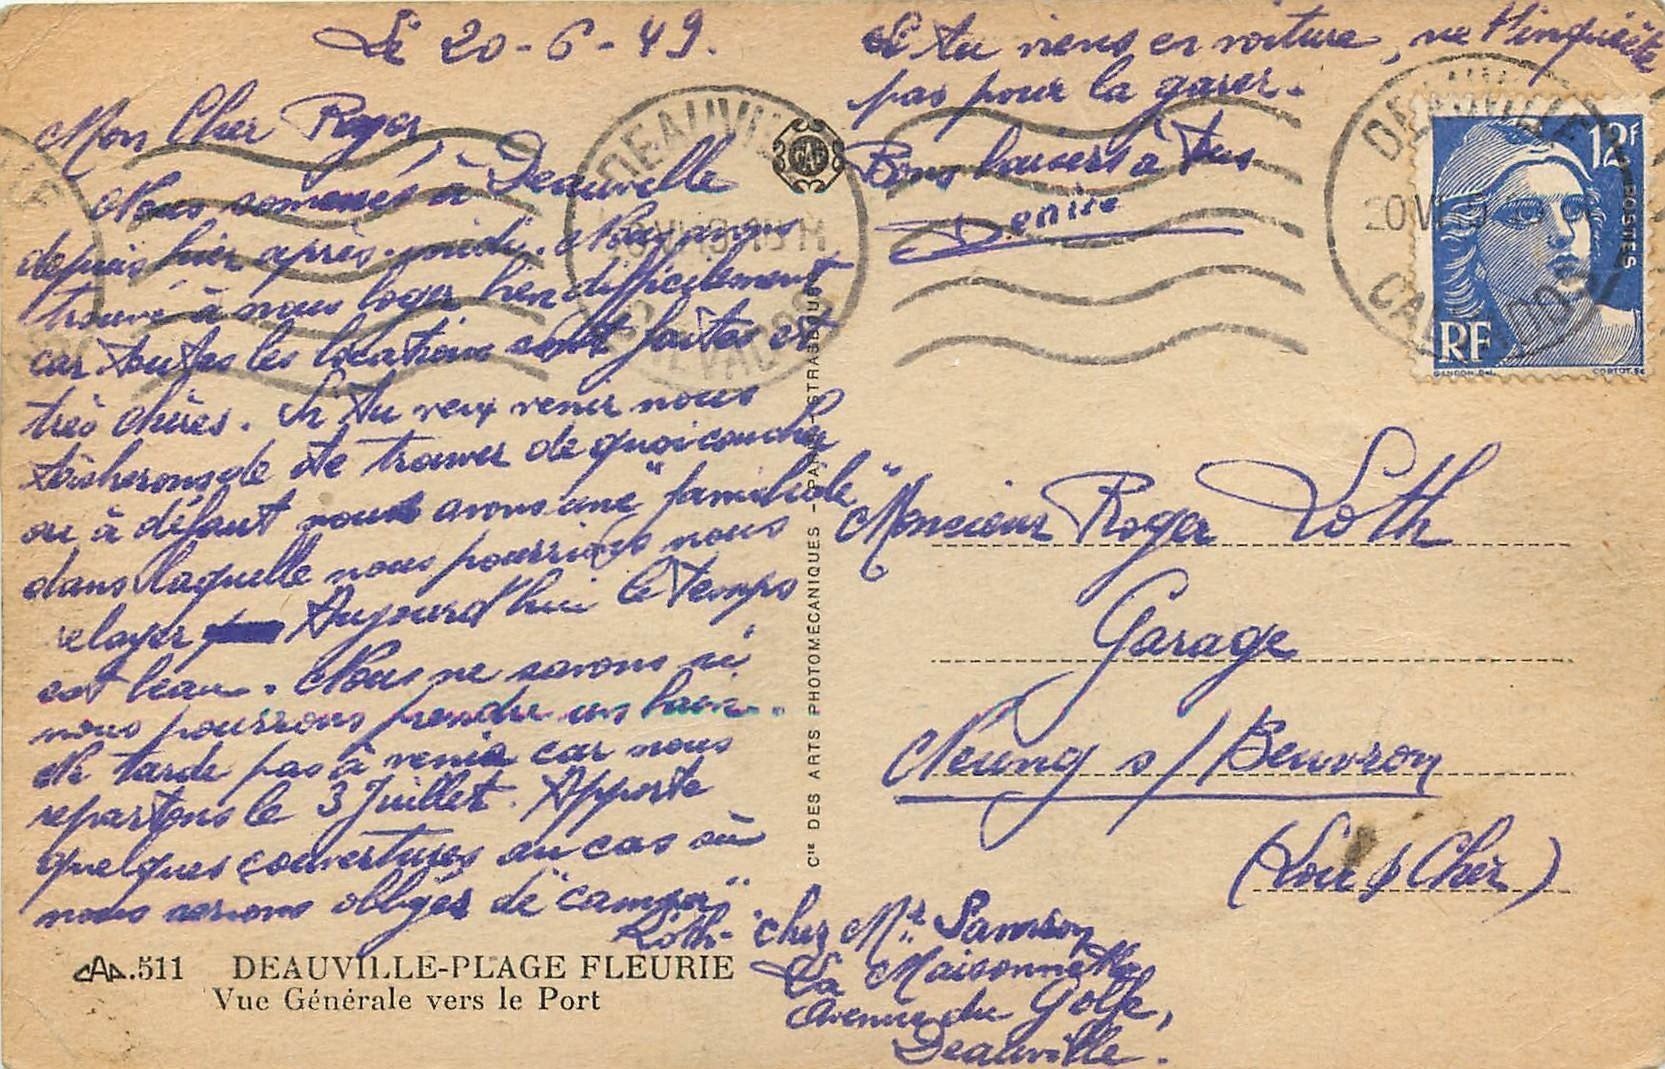 Le 20-6-49.
Mon Cher Roger,
Nous sommes à Deauville
depuis hier après-midi. Nous avons
trouvé à nous loger bien difficilement
car toutes les locations sont faites et
très chères. Si tu veux venir nous
tâcherons de te trouver de quoi coucher
ou à défaut nous avons une "familiale"
dans laquelle nous pourrions nous
relayer Aujourd'hui le temps
est beau. Nous ne savons si
nous pourrons prendre un bain.
Ne tarde pas à venir car nous
repartons le 3 Juillet. Apporte
quelques couvertures au cas où
nous serions obligés de "camper"
Si tu viens en voiture, ne t'inquiète
pas pour la garer.
Bons baisers à tous
Denise
Loth - chez Mr Samson
La Maisonnette
Avenue du Golfe,
Deauville.
CAP.511 DEAUVILLE-PLAGE FLEURIE
Vue Générale vers le Port
Cie DES ARTS PHOTOMÉCANIQUES - PARIS-STRASBOURG
CAP
DEAUVILLE
CALVADOS
DEAUVILLE
CALVADOS
12F
POSTES
RF
GANDON Del.
CORTOT. Sc
Monsieur Roger Loth
Garage
Neung s/Beuvron
(Loir & Cher)